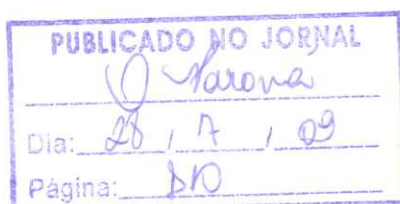 PUBLICADO NO JORNAL
O Paraná
Dia: 28 / 7 / 09
Página: